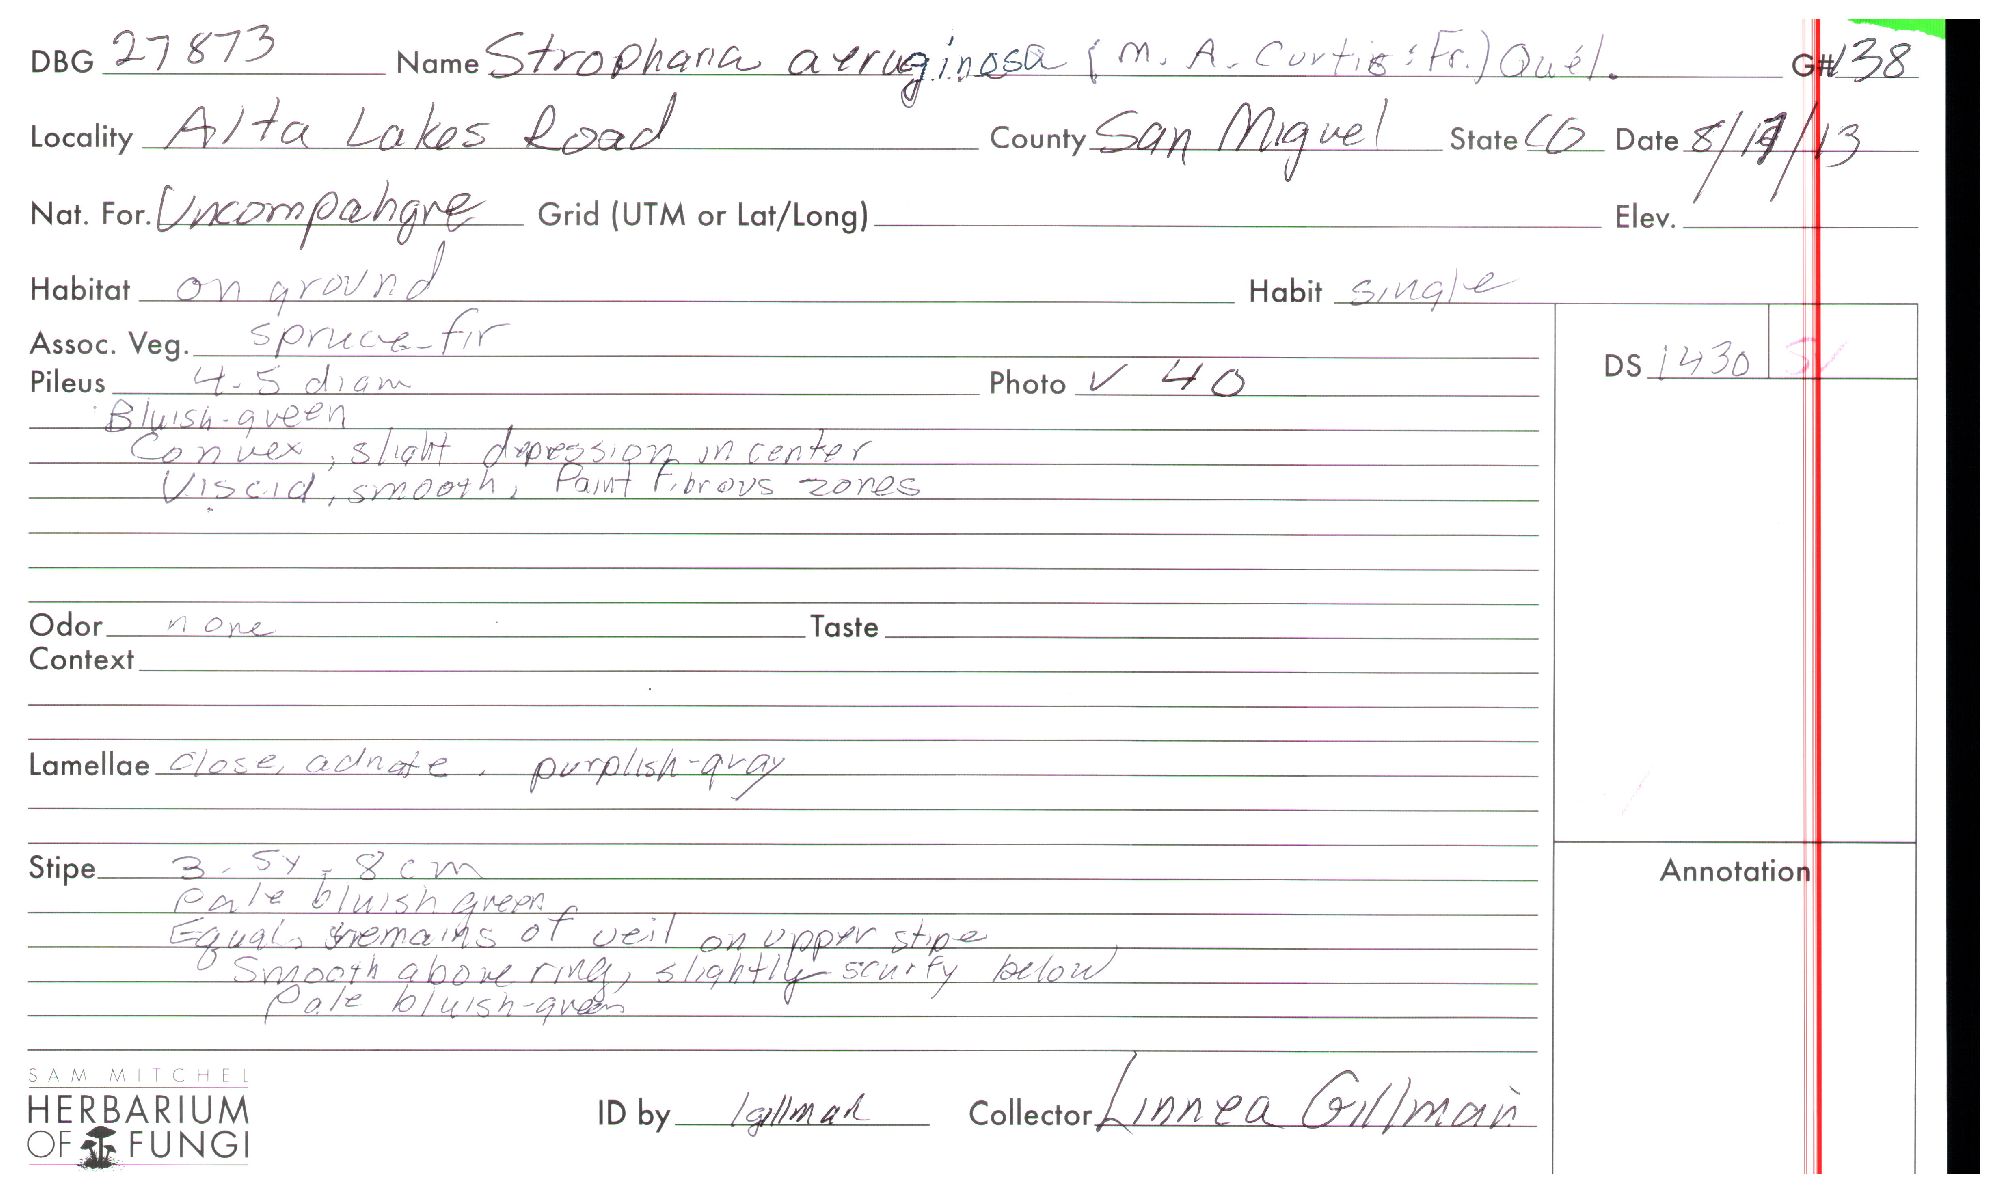 DBG 27873 Name Stropharia aeruginosa (M. A. Curtis : Fr.) Quél. G# 138
Locality Alta Lakes Road County San Miguel State CO Date 8/17/13
Nat. For. Uncompahgre Grid (UTM or Lat/Long) Elev.
Habitat on ground Habit single
Assoc. Veg. spruce-fir
DS 1430
Pileus 4.5 diam Photo ✓ 40
Bluish-green
Convex, slight depression in center
Viscid, smooth, Faint Fibrous zones
Odor none Taste
Context
Lamellae close, adnate, purplish-gray
Stipe 3.5 x .8 cm
Annotation
Pale bluish green
Equal, remains of veil on upper stipe
Smooth above ring, slightly scurfy below
Pale bluish-green
SAM MITCHEL
HERBARIUM
OF FUNGI
ID by lgillman Collector Linnea Gillman